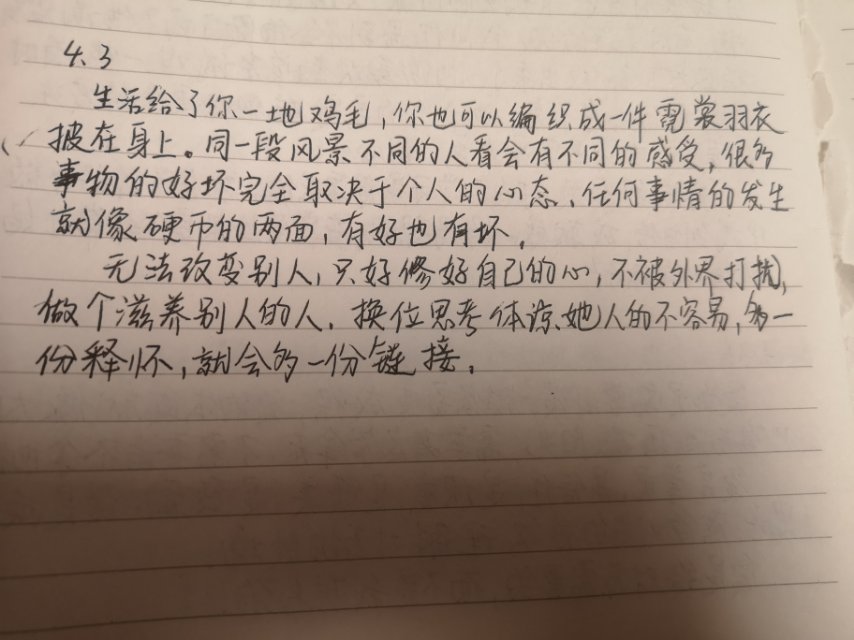 4.3
生活给了你一地鸡毛，你也可以编织成一件霓裳羽衣
披在身上。同一段风景不同的人看会有不同的感受，很多
事物的好坏完全取决于个人的心态、任何事情的发生
就像硬币的两面，有好也有坏。
无法改变别人，只好修好自己的心，不被外界打扰，
做个滋养别人的人．换位思考体谅她人的不容易，多一
份释怀，就会多一份链接。